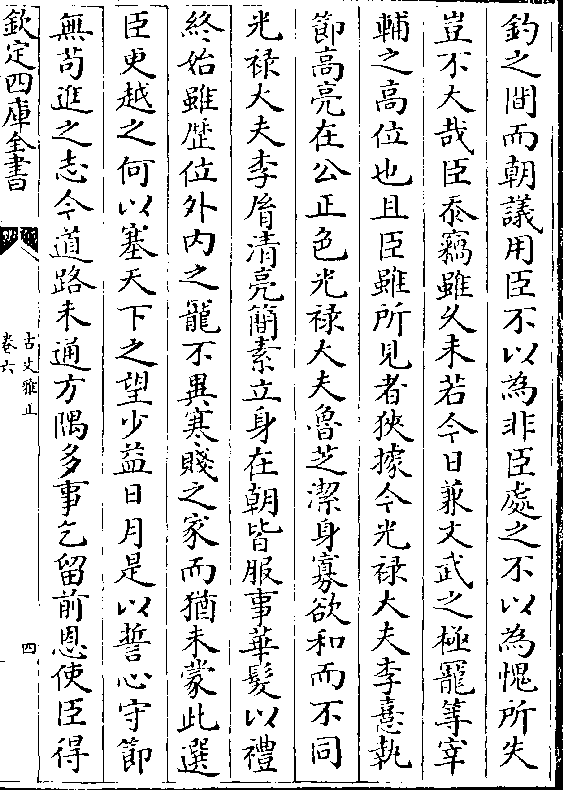 釣之間而朝議用臣不以為非臣處之不以為愧所失
豈不大哉臣忝竊雖久未若今日兼文武之極寵等宰
輔之高位也且臣雖所見者狹據今光禄大夫李憙執
節高亮在公正色光禄大夫魯芝潔身寡欲和而不同
光禄大夫李㣧清亮簡素立身在朝皆服事華髮以禮
終始雖歴位外内之寵不異寒賤之家而猶未蒙此選
臣更越之何以塞天下之望少益日月是以誓心守節
無苟進之志今道路未通方隅多事乞留前恩使臣得
欽定四庫全書
古文雅正
卷六
四